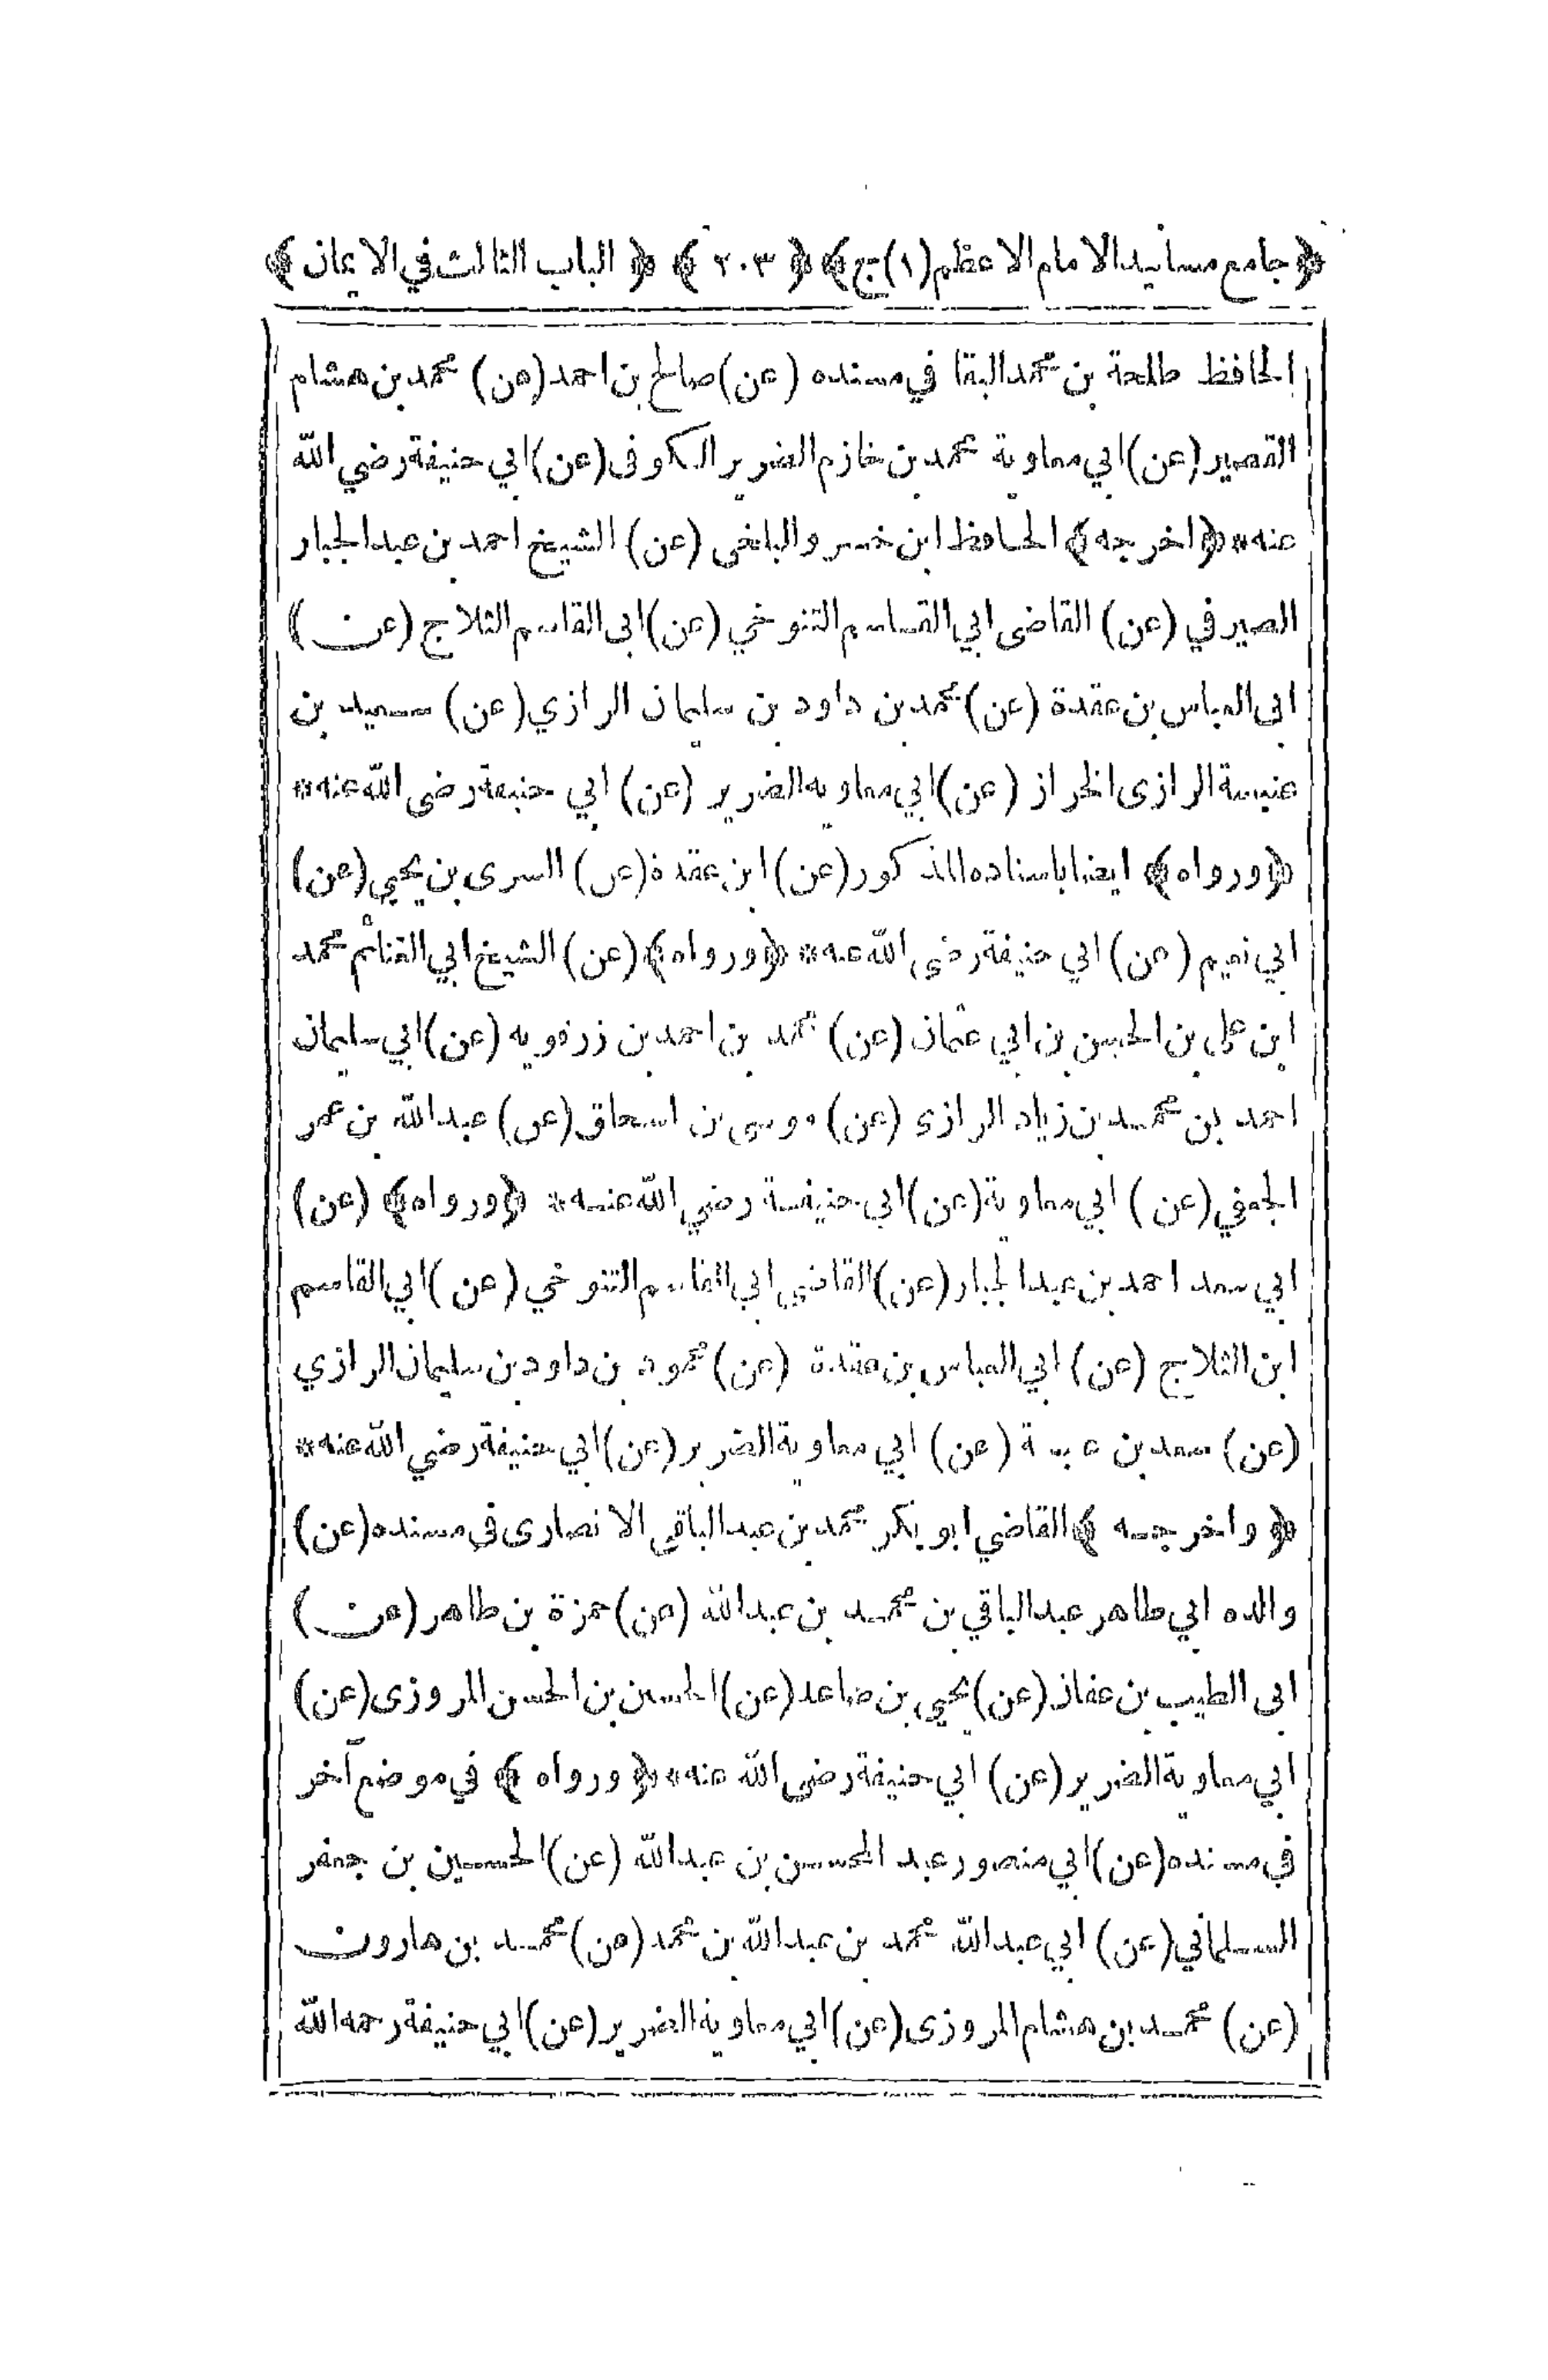 ﴿جامع مسانيد الامام الاعظم (١) ج﴾ ﴿٢٠٣﴾ ﴿الباب الثالث في الايمان﴾
الحافظ طلحة بن محمد البقا في مسنده (عن) صالح بن احمد (عن) محمد بن هشام
القصير (عن) ابي معاوية محمد بن خازم الضرير الكوفى (عن) ابي حنيفة رضي الله
عنه* ﴿اخرجه﴾ الحافظ ابن خسرو البلخى (عن) الشيخ احمد بن عبد الجبار
الصيرفي (عن) القاضى ابي القاسم التنوخي (عن) ابى القاسم الثلاج (عن)
ابى العباس بن عقدة (عن) محمد بن داود بن سليمان الرازي (عن) سعيد بن
عنبسة الرازى الخراز (عن) ابي معاويه الضرير (عن) ابي حنيفة رضى الله عنه*
﴿ورواه﴾ ايضا باسناده المذكور (عن) ابن عقدة (عن) السرى بن يحيي (عن)
ابي نعيم (عن) ابي حنيفة رضى الله عنه* ﴿ورواه﴾ (عن) الشيخ ابي الغنائم محمد
ابن على بن الحسن بن ابي عثمان (عن) محمد بن احمد بن زرقويه (عن) ابي سليمان
احمد بن محمد بن زياد الرازى (عن) موسى بن اسحاق (عن) عبد الله بن عمر
الجعفي (عن) ابي معاوية (عن) ابى حنيفة رضي الله عنه* ﴿ورواه﴾ (عن)
ابي سعد احمد بن عبد الجبار (عن) القاضي ابي القاسم التنوخي (عن) ابي القاسم
ابن الثلاج (عن) ابي العباس بن عقدة (عن) محمود بن داود بن سليمان الرازي
(عن) سعد بن عبسة (عن) ابي معاوية الضرير (عن) ابي حنيفة رضي الله عنه*
﴿واخرجه﴾ القاضي ابو بكر محمد بن عبد الباقي الانصارى في مسنده (عن)
والده ابي طاهر عبد الباقي بن محمد بن عبد الله (عن) حمزة بن طاهر (عن)
ابى الطيب بن عفان (عن) يحيي بن صاعد (عن) الحسين بن الحسن المروزى (عن)
ابي معاوية الضرير (عن) ابي حنيفة رضي الله عنه* ﴿ورواه﴾ في موضع آخر
في مسنده (عن) ابي منصور عبد المحسن بن عبد الله (عن) الحسين بن جعفر
السلماني (عن) ابي عبد الله محمد بن عبد الله بن محمد (عن) محمد بن هارون
(عن) محمد بن هشام المروزى (عن) ابي معاوية الضرير (عن) ابي حنيفة رحمه الله